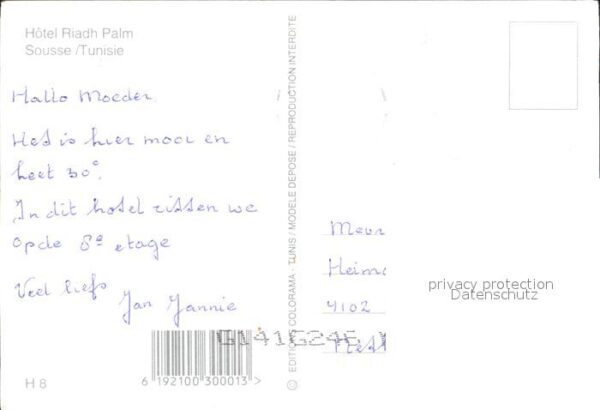 Hôtel Riadh Palm
Sousse /Tunisie
Hallo Moeder
Het is hier mooi en
heet 30°.
In dit hotel zitten we
op de 8e etage
Veel liefs
Jan Jannie
H 8
6 192100 300013 >
© EDITION COLORAMA - TUNIS / MODELE DEPOSE / REPRODUCTION INTERDITE
Mevr
Heim
4102
privacy protection
Datenschutz